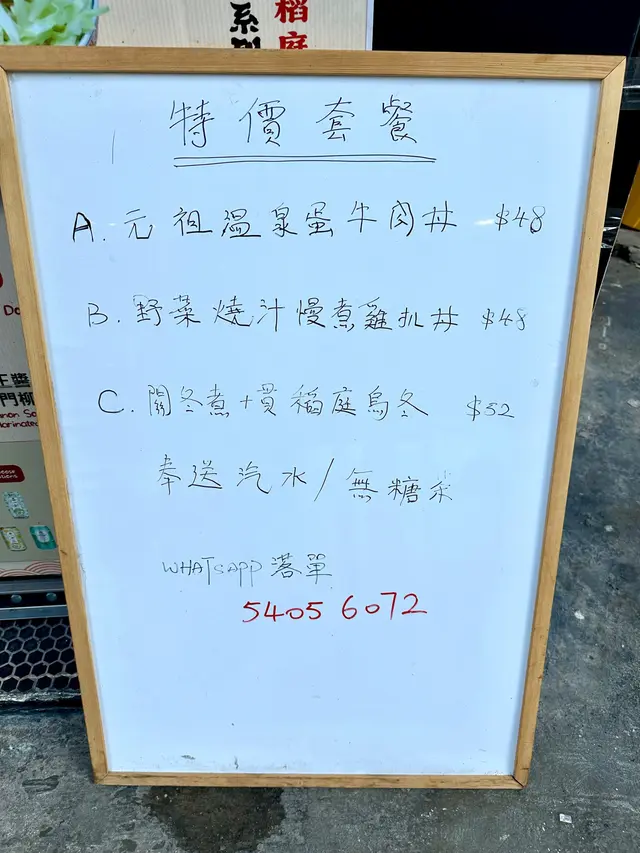 稻庭
系列
特價套餐
A. 元祖温泉蛋牛肉丼 $48
B. 野菜燒汁慢煮雞扒丼 $48
C. 關冬煮+貫稻庭烏冬 $52
奉送汽水/無糖茶
WHATSAPP 落單
5405 6072